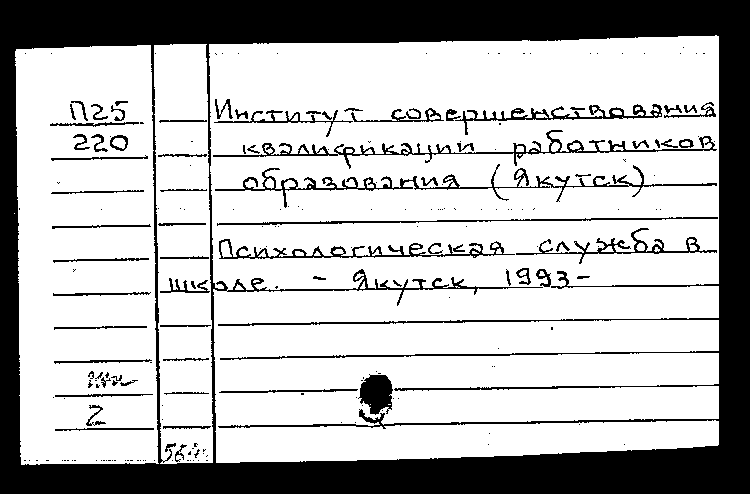 П25
220
Институт совершенствования
квалификации работников
образования (Якутск)
Психологическая служба в
школе. - Якутск, 1993-
2